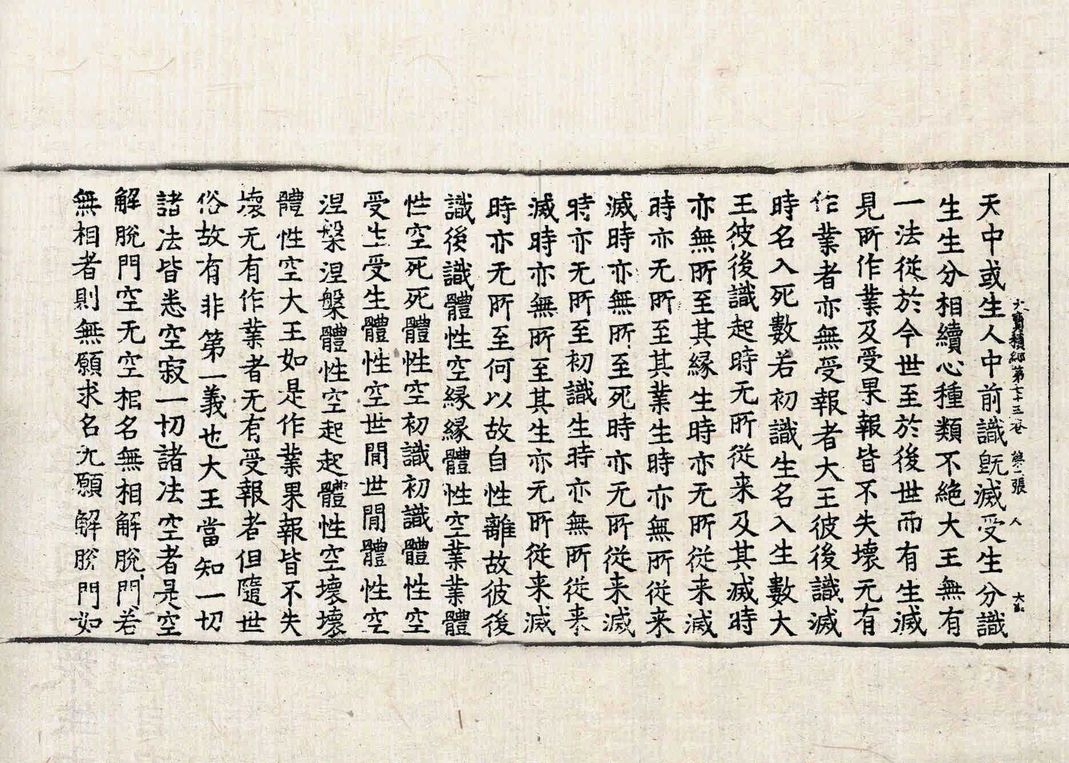 大寶積經第七十三卷 第二張 人
天中或生人中前識旣滅受生分識
生生分相續心種類不絶大王無有
一法從於今世至於後世而有生滅
見所作業及受果報皆不失壞无有
作業者亦無受報者大王彼後識滅
時名入死數若初識生名入生數大
王彼後識起時无所從来及其滅時
亦無所至其縁生時亦无所從来滅
時亦无所至其業生時亦無所從来
滅時亦無所至死時亦无所從来滅
時亦无所至初識生時亦無所從来
滅時亦無所至其生亦无所從来滅
時亦无所至何以故自性離故彼後
識後識體性空縁縁體性空業業體
性空死死體性空初識初識體性空
受生受生體性空世閒世閒體性空
涅槃涅槃體性空起起體性空壞壞
體性空大王如是作業果報皆不失
壞无有作業者无有受報者但隨世
俗故有非第一義也大王當知一切
諸法皆悉空寂一切諸法空者是空
解脫門空无空相名無相解脫門若
無相者則無願求名无願解脫門如